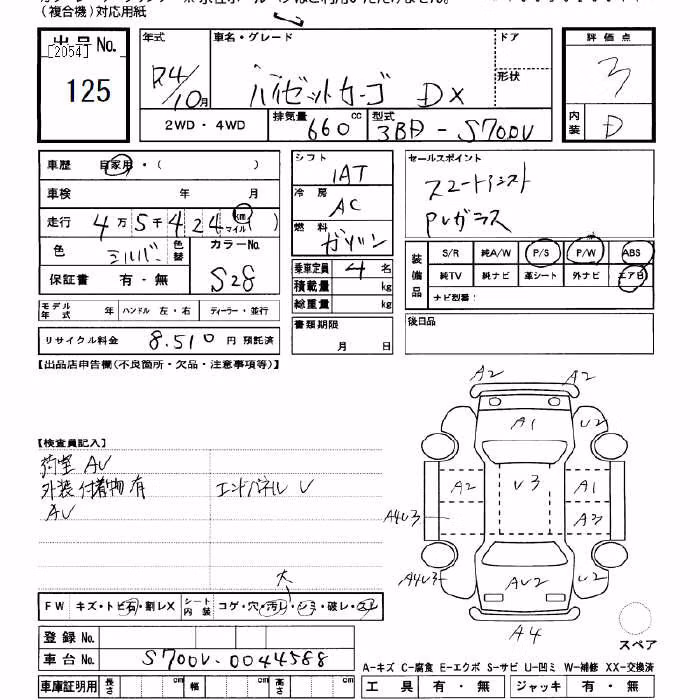 (複合機)対応用紙
出品No.
[2054]
125
年式
R4/10月
車名・グレード
ハイゼットカーゴ DX
ドア
形状
2WD・4WD
排気量 660 cc
型式 3BD-S700V
評価点
3
内装 D
車歴 自家用・( )
車検 年 月
走行 4万5千424 km マイル ( )
色 シルバー 色替
カラーNo. S28
保証書 有・無
モデル年式 年 ハンドル 左・右 ディーラー・並行
リサイクル料金 8,510 円 預託済
シフト
IAT
冷房
AC
燃料
ガソリン
乗車定員 4 名
積載量 kg
総重量 kg
書類期限
月 日
セールスポイント
スマートアシスト
PVガラス
装備品
S/R 純A/W P/S P/W ABS
純TV 純ナビ 革シート 外ナビ エアB
ナビ型番:
後日品
【出品店申告欄(不良箇所・欠品・注意事項等)】
【検査員記入】
荷室 AU
外装付着物有 エンドパネル U
AU
A2 A2
A1 U2
A2 U3 A1
A4U3 A2
A4U3 AU2 U2
A4
大
FW キズ・トビ石・割レX シート内装 コゲ・穴・汚レ・シミ・破レ・スレ
登録No.
車台No. S700V-0044588
車庫証明用 長さ cm 幅 cm 高さ cm
スペア
A-キズ C-腐食 E-エクボ S-サビ U-凹ミ W-補修 XX-交換済
工具 有・無 ジャッキ 有・無